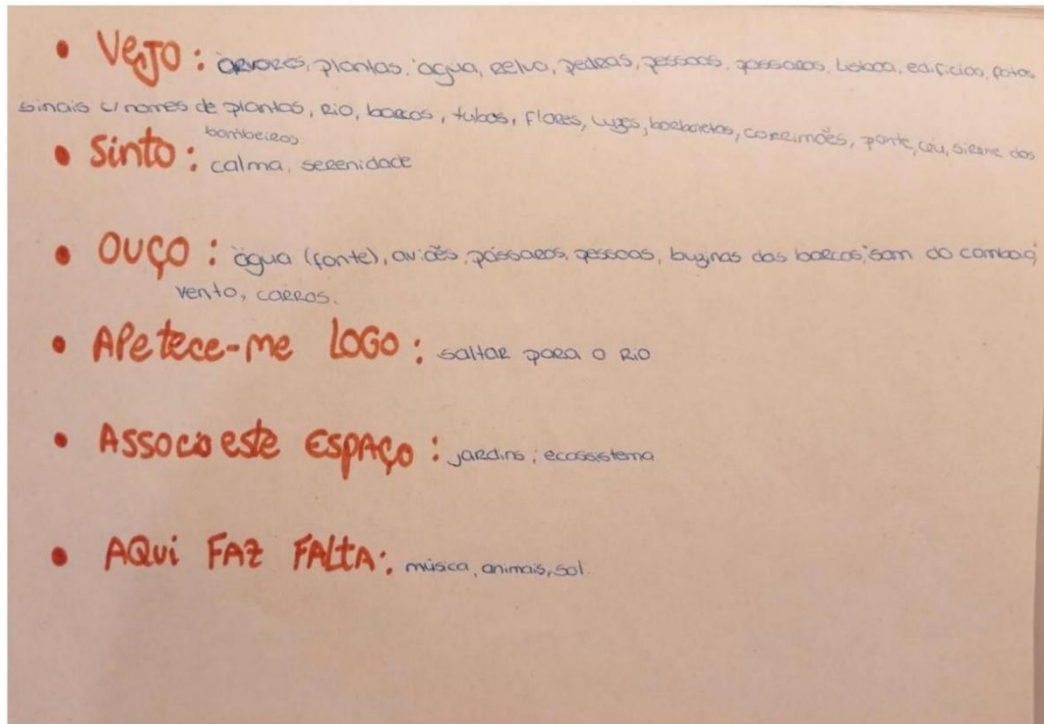 • VEJO: árvores, plantas, água, relva, pedras, pessoas, pássaros, Lisboa, edifícios, patos
sinais c/nomes de plantas, rio, barcos, tubos, flores, luzes, borboletas, corrimões, ponte, céu, sirene dos
bombeiros
• Sinto: calma, serenidade
• OUÇO: água (fonte), aviões, pássaros, pessoas, buzinas dos barcos, som do comboio,
vento, carros.
• APetece-me LOGO: saltar para o rio
• ASSOCio este ESPAÇO: jardins; ecossistema
• AQUi FAZ FALTA: música, animais, sol.